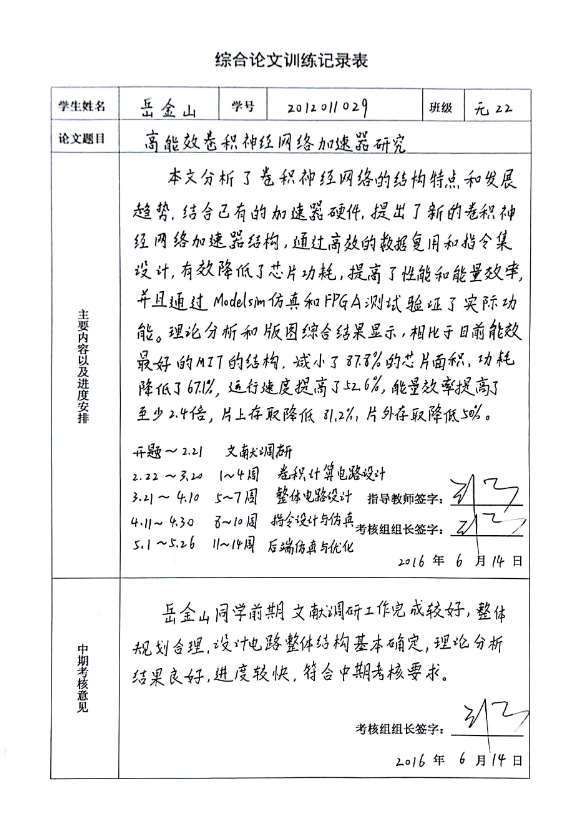 综合论文训练记录表
学生姓名 岳金山 学号 2012011029 班级 无22
论文题目 高能效卷积神经网络加速器研究
主要内容以及进度安排
本文分析了卷积神经网络的结构特点和发展
趋势,结合已有的加速器硬件,提出了新的卷积神
经网络加速器结构,通过高效的数据复用和指令集
设计,有效降低了芯片功耗,提高了性能和能量效率,
并且通过Modelsim仿真和FPGA测试验证了实际功
能。理论分析和版图综合结果显示,相比于目前能效
最好的MIT的结构,减小了87.8%的芯片面积,功耗
降低了67.1%,运行速度提高了52.6%,能量效率提高了
至少2.4倍,片上存取降低81.2%,片外存取降低50%。
开题~2.21 文献调研
2.22~3.20 1~4周 卷积计算电路设计
3.21~4.10 5~7周 整体电路设计 指导教师签字:
4.11~4.30 8~10周 指令设计与仿真 考核组组长签字:
5.1~5.26 11~14周 后端仿真与优化
2016年6月14日
中期考核意见
岳金山同学前期文献调研工作完成较好,整体
规划合理,设计电路整体结构基本确定,理论分析
结果良好,进度较快,符合中期考核要求。
考核组组长签字:
2016年6月14日